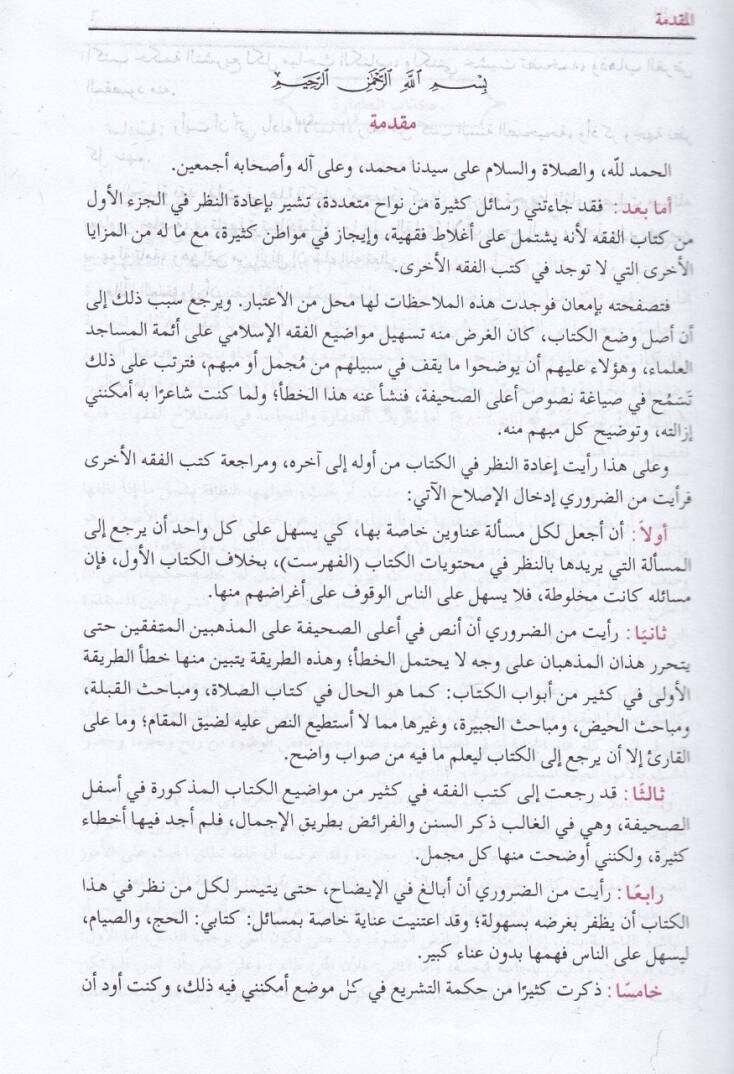 المقدمة
بِسْمِ اللَّهِ الرَّحْمَنِ الرَّحِيمِ
مقدمة
الحمد للّه، والصلاة والسلام على سيدنا محمد، وعلى آله وأصحابه أجمعين.
أما بعد: فقد جاءتني رسائل كثيرة من نواح متعددة، تشير بإعادة النظر في الجزء الأول
من كتاب الفقه لأنه يشتمل على أغلاط فقهية، وإيجاز في مواطن كثيرة، مع ما له من المزايا
الأخرى التي لا توجد في كتب الفقه الأخرى.
فتصفحته بإمعان فوجدت هذه الملاحظات لها محل من الأعتبار. ويرجع سبب ذلك إلى
أن أصل وضع الكتاب، كان الغرض منه تسهيل مواضيع الفقه الإسلامي على أئمة المساجد
العلماء، وهؤلاء عليهم أن يوضحوا ما يقف في سبيلهم من مُجمل أو مبهم، فترتب على ذلك
تَسَمُح في صياغة نصوص أعلى الصحيفة، فنشأ عنه هذا الخطأ؛ ولما كنت شاعرًا به أمكنني
إزالته، وتوضيح كل مبهم منه.
وعلى هذا رأيت إعادة النظر في الكتاب من أوله إلى آخره، ومراجعة كتب الفقه الأخرى
فرأيت من الضروري إدخال الإصلاح الآتي:
أولاً: أن أجعل لكل مسألة عناوين خاصة بها، كي يسهل على كل واحد أن يرجع إلى
المسألة التي يريدها بالنظر في محتويات الكتاب (الفهرست)، بخلاف الكتاب الأول، فإن
مسائله كانت مخلوطة، فلا يسهل على الناس الوقوف على أغراضهم منها.
ثانيًا: رأيت من الضروري أن أنص في أعلى الصحيفة على المذهبين المتفقين حتى
يتحرر هذان المذهبان على وجه لا يحتمل الخطأ؛ وهذه الطريقة يتبين منها خطأ الطريقة
الأولى في كثير من أبواب الكتاب: كما هو الحال في كتاب الصلاة، ومباحث القبلة،
ومباحث الحيض، ومباحث الجبيرة، وغيرها مما لا أستطيع النص عليه لضيق المقام؛ وما على
القارئ إلا أن يرجع إلى الكتاب ليعلم ما فيه من صواب واضح.
ثالثًا: قد رجعت إلى كتب الفقه في كثير من مواضيع الكتاب المذكورة في أسفل
الصحيفة، وهي في الغالب ذكر السنن والفرائض بطريق الإجمال، فلم أجد فيها أخطاء
كثيرة، ولكنني أوضحت منها كل مجمل.
رابعًا: رأيت من الضروري أن أبالغ في الإيضاح، حتى يتيسر لكل من نظر في هذا
الكتاب أن يظفر بغرضه بسهولة؛ وقد اعتنيت عناية خاصة بمسائل: كتابي: الحج، والصيام،
ليسهل على الناس فهمها بدون عناء كبير.
خامسًا: ذكرت كثيرًا من حكمة التشريع في كل موضع أمكنني فيه ذلك، وكنت أود أن